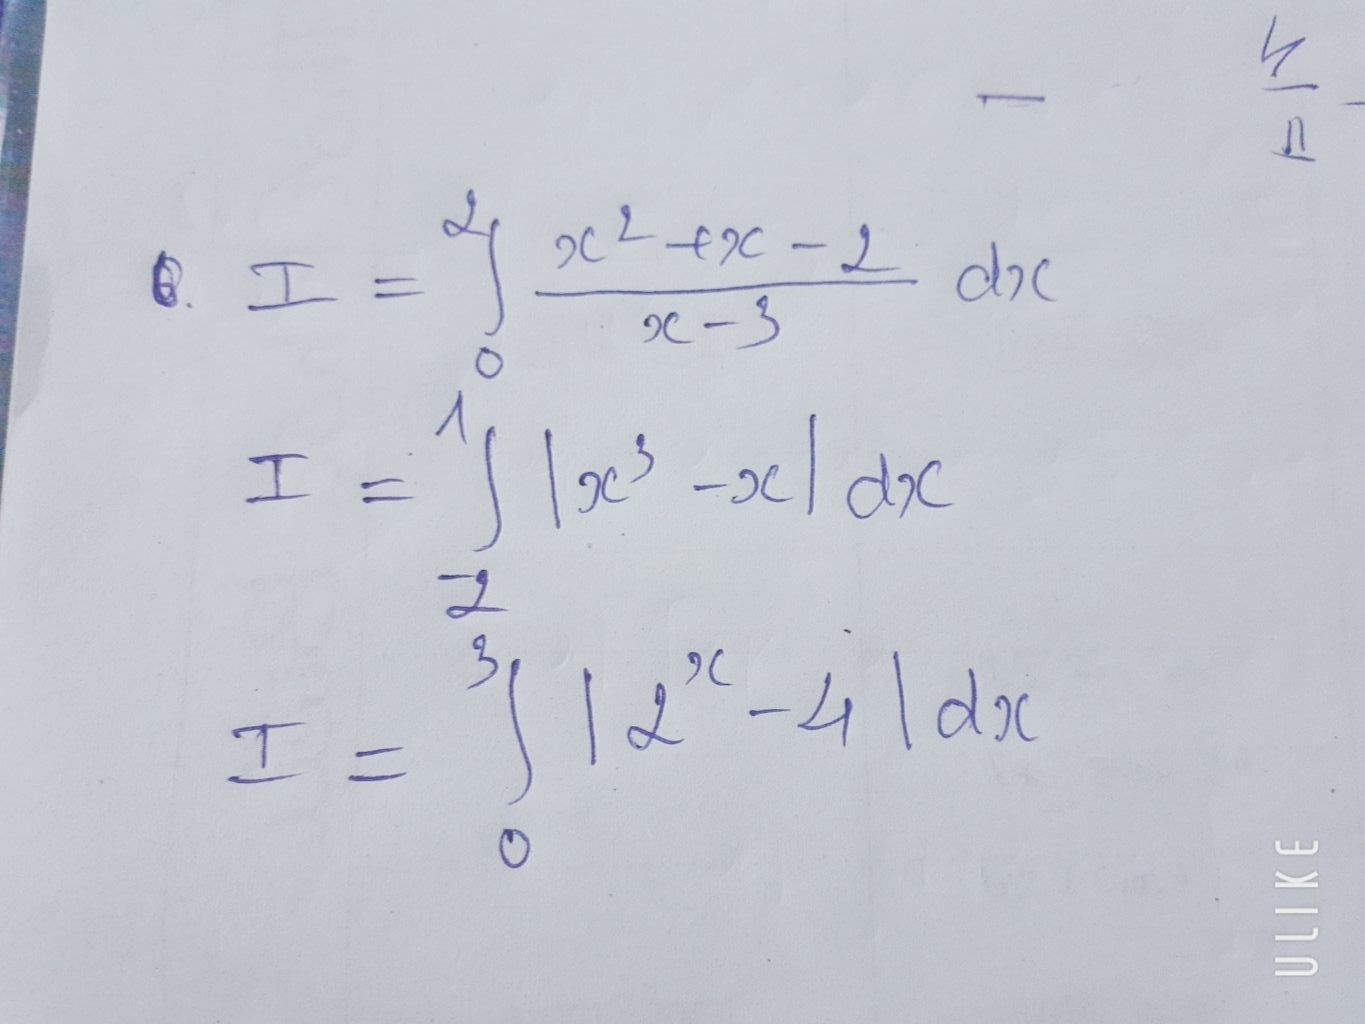 6. I = ∫₀² (x² + x - 2)/(x - 3) dx
I = ∫₋₂¹ |x³ - x| dx
I = ∫₀³ |2ˣ - 4| dx
ULIKE